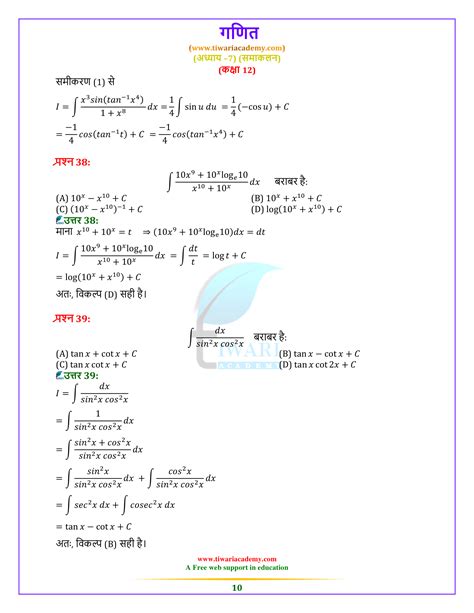 गणित
(www.tiwariacademy.com)
(अध्याय –7) (समाकलन)
(कक्षा 12)
समीकरण (1) से
I = ∫ x³sin(tan⁻¹x⁴)/(1 + x⁸) dx = 1/4 ∫ sin u du = 1/4 (−cos u) + C
= −1/4 cos(tan⁻¹t) + C = −1/4 cos(tan⁻¹x⁴) + C
प्रश्न 38:
∫ (10x⁹ + 10ˣlogₑ10)/(x¹⁰ + 10ˣ) dx बराबर है:
(A) 10ˣ − x¹⁰ + C (B) 10ˣ + x¹⁰ + C
(C) (10ˣ − x¹⁰)⁻¹ + C (D) log(10ˣ + x¹⁰) + C
उत्तर 38:
माना x¹⁰ + 10ˣ = t ⇒ (10x⁹ + 10ˣlogₑ10)dx = dt
I = ∫ (10x⁹ + 10ˣlogₑ10)/(x¹⁰ + 10ˣ) dx = ∫ dt/t = log t + C
= log(10ˣ + x¹⁰) + C
अतः, विकल्प (D) सही है।
प्रश्न 39:
∫ dx/(sin²x cos²x) बराबर है:
(A) tan x + cot x + C (B) tan x − cot x + C
(C) tan x cot x + C (D) tan x cot 2x + C
उत्तर 39:
I = ∫ dx/(sin²x cos²x)
= ∫ 1/(sin²x cos²x) dx
= ∫ (sin²x + cos²x)/(sin²x cos²x) dx
= ∫ sin²x/(sin²x cos²x) dx + ∫ cos²x/(sin²x cos²x) dx
= ∫ sec²x dx + ∫ cosec²x dx
= tan x − cot x + C
अतः, विकल्प (B) सही है।
TIWARI
ACADEMY
www.tiwariacademy.com
A Free web support in education
10